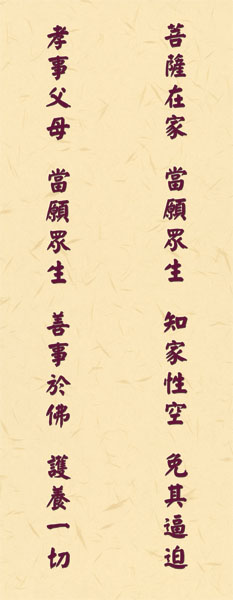 菩薩在家 當願眾生 知家性空 免其逼迫
孝事父母 當願眾生 善事於佛 護養一切